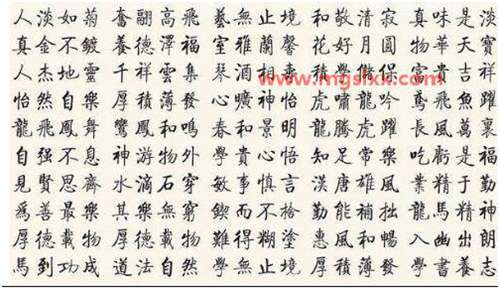 人淡如菊 奮翮高飛 藝無止境 和敬清寂 真味是淡
真金不鍍 養德澤福 室雅蘭馨 花好月圓 物華天寶
人杰地靈 千祥雲集 琴酒相 積學 富貴吉祥
怡然自樂 厚積薄發 心曠神怡 虎嘯龍吟 鳶飛魚躍
龍飛鳳舞 鸞鳳和鳴 春和景明 龍騰虎躍 長風萬裏
自强不息 神游物外 學貴心悟 知足常樂 吃虧是福
見賢思齊 水滴石穿 敏事慎言 漢唐雄風 業精于勤
爲善最樂 其樂無窮 鍥而不捨 勤能補拙 龍馬精神
厚德載物 厚德載物 難得糊塗 惠風和暢 入幽出朗
馬到功成 道法自然 學無止境 厚積薄發 學書養志